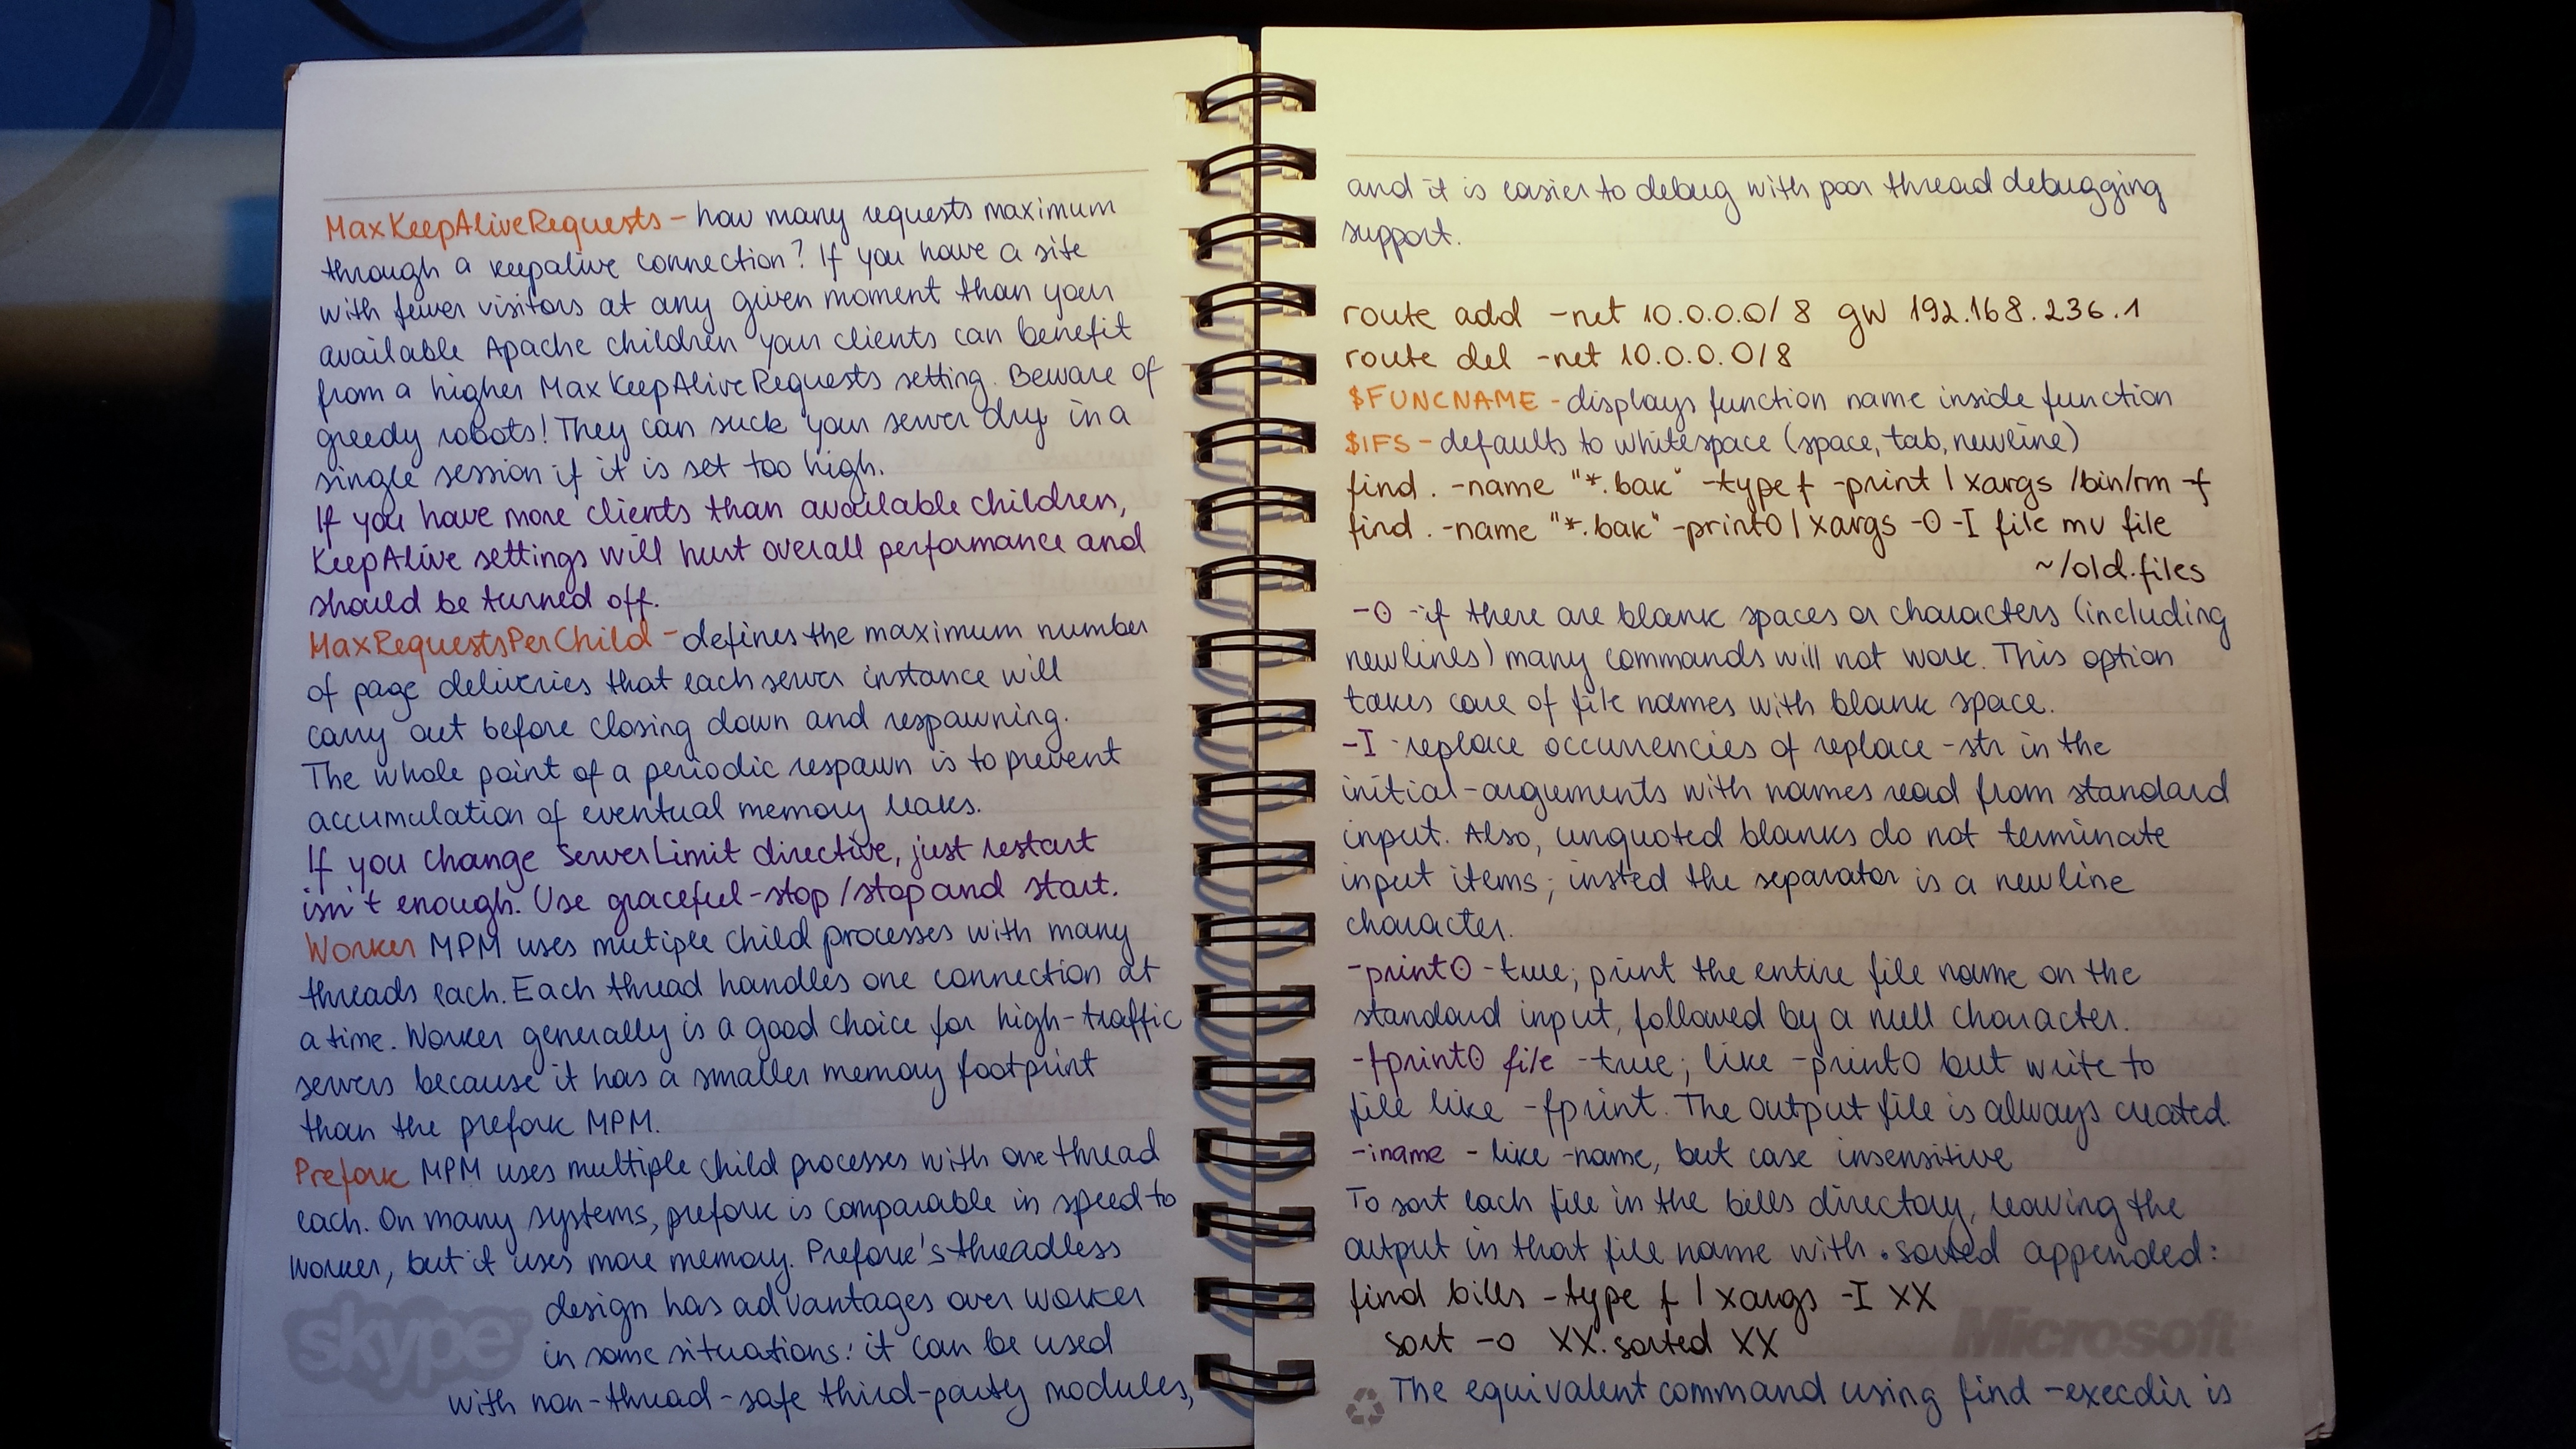 MaxKeepAliveRequests - how many requests maximum
through a keepalive connection? If you have a site
with fewer visitors at any given moment than your
available Apache children your clients can benefit
from a higher MaxKeepAliveRequests setting. Beware of
greedy robots! They can suck your server dry in a
single session if it is set too high.
If you have more clients than available children,
KeepAlive settings will hurt overall performance and
should be turned off.
MaxRequestsPerChild - defines the maximum number
of page deliveries that each server instance will
carry out before closing down and respawning.
The whole point of a periodic respawn is to prevent
accumulation of eventual memory leaks.
If you change ServerLimit directive, just restart
isn't enough. Use graceful-stop/stop and start.
Worker MPM uses mutiple child processes with many
threads each. Each thread handles one connection at
a time. Worker generally is a good choice for high-traffic
servers because it has a smaller memory footprint
than the prefork MPM.
Prefork MPM uses multiple child processes with one thread
each. On many systems, prefork is comparable in speed to
worker, but it uses more memory. Prefork's threadless
design has advantages over worker
in some situations: it can be used
with non-thread-safe third-party modules,
skype
and it is easier to debug with poor thread debugging
support.
route add -net 10.0.0.0/8 gw 192.168.236.1
route del -net 10.0.0.0/8
$FUNCNAME - displays function name inside function
$IFS - defaults to whitespace (space, tab, newline)
find . -name "*.bak" -type f -print | xargs /bin/rm -f
find . -name "*.bak" -print0 | xargs -0 -I file mv file
~/old.files
-0 - if there are blank spaces or characters (including
newlines) many commands will not work. This option
takes care of file names with blank space.
-I - replace occurrencies of replace-str in the
initial-arguments with names read from standard
input. Also, unquoted blanks do not terminate
input items; insted the separator is a newline
character.
-print0 - true; print the entire file name on the
standard input, followed by a null character.
-fprint0 file - true; like -print0 but write to
file like -fprint. The output file is always created.
-iname - like -name, but case insensitive
To sort each file in the bills directory, leaving the
output in that file name with .sorted appended:
find bills -type f | xargs -I XX
sort -o XX.sorted XX
Microsoft
The equivalent command using find -execdir is